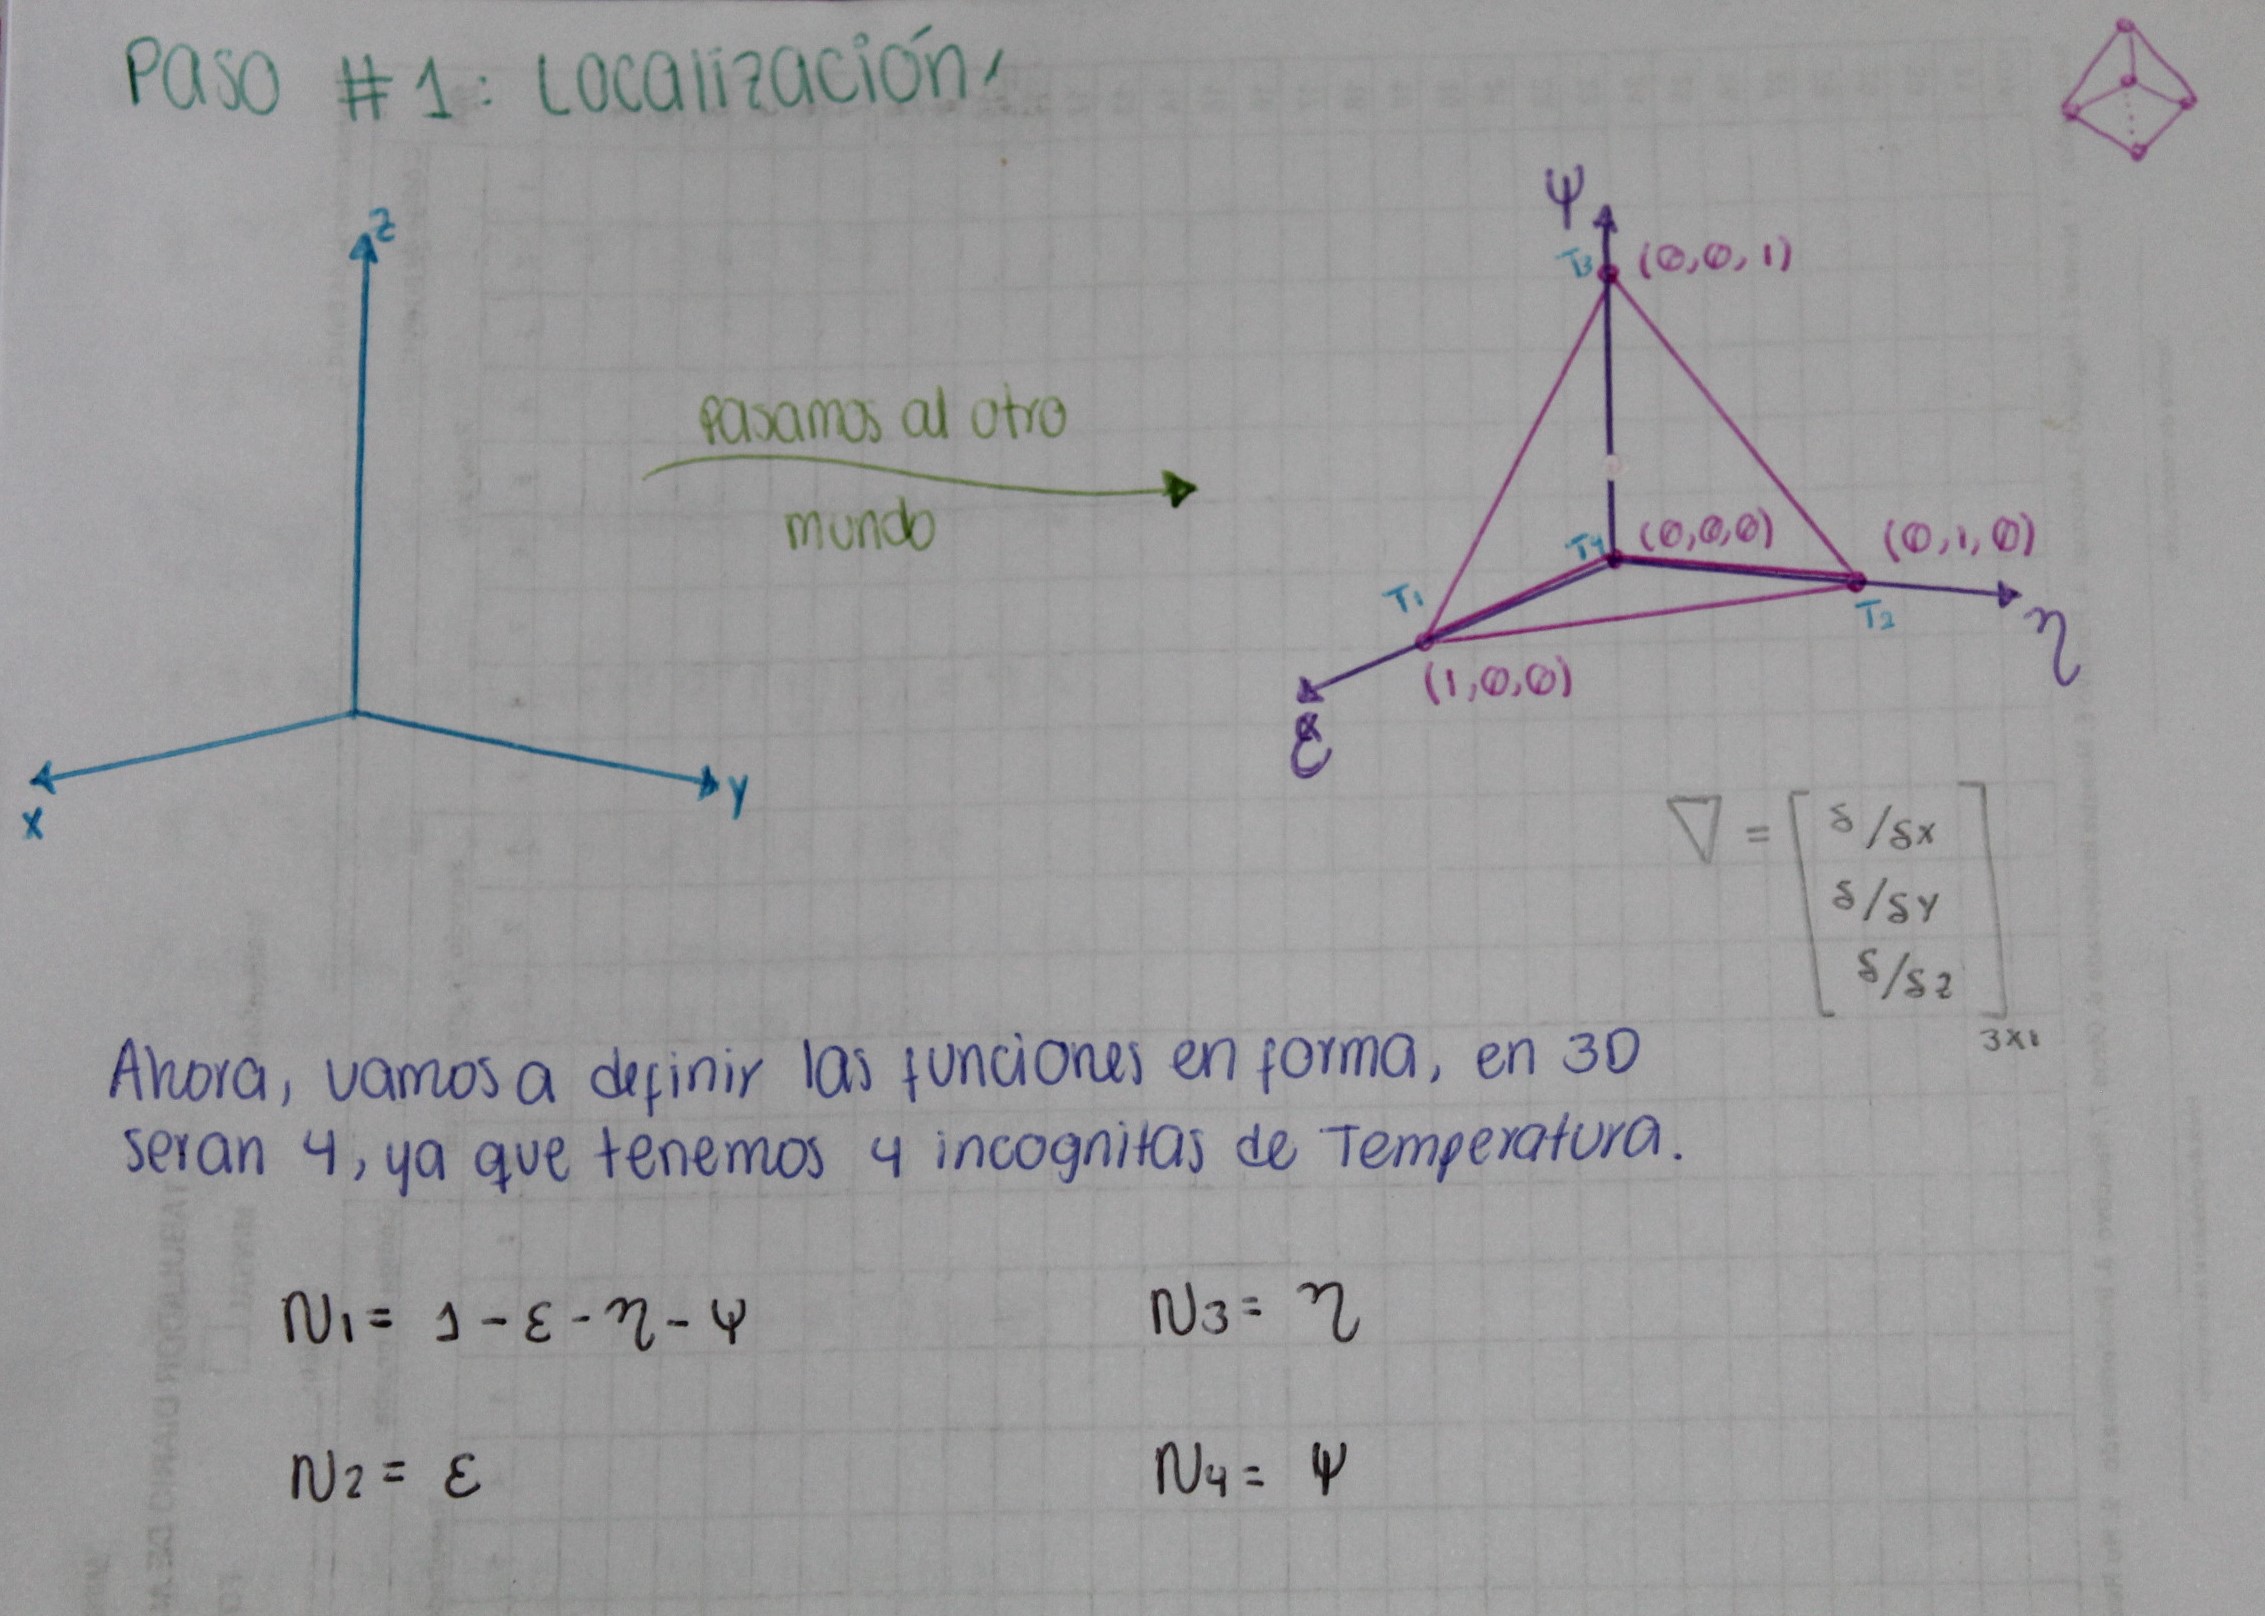 Paso #1: Localización,
z
x
y
pasamos al otro
mundo
ψ
T3 (0,0,1)
T4 (0,0,0)
(0,1,0)
T1
T2
η
(1,0,0)
ε
∇ = [δ/δx
δ/δy
δ/δz] 3x1
Ahora, vamos a definir las funciones en forma, en 3D
seran 4, ya que tenemos 4 incognitas de Temperatura.
N1 = 1 - ε - η - ψ
N3 = η
N2 = ε
N4 = ψ